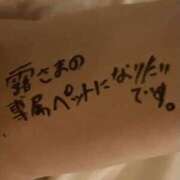 露さまの
専属ペットになりたい
です。